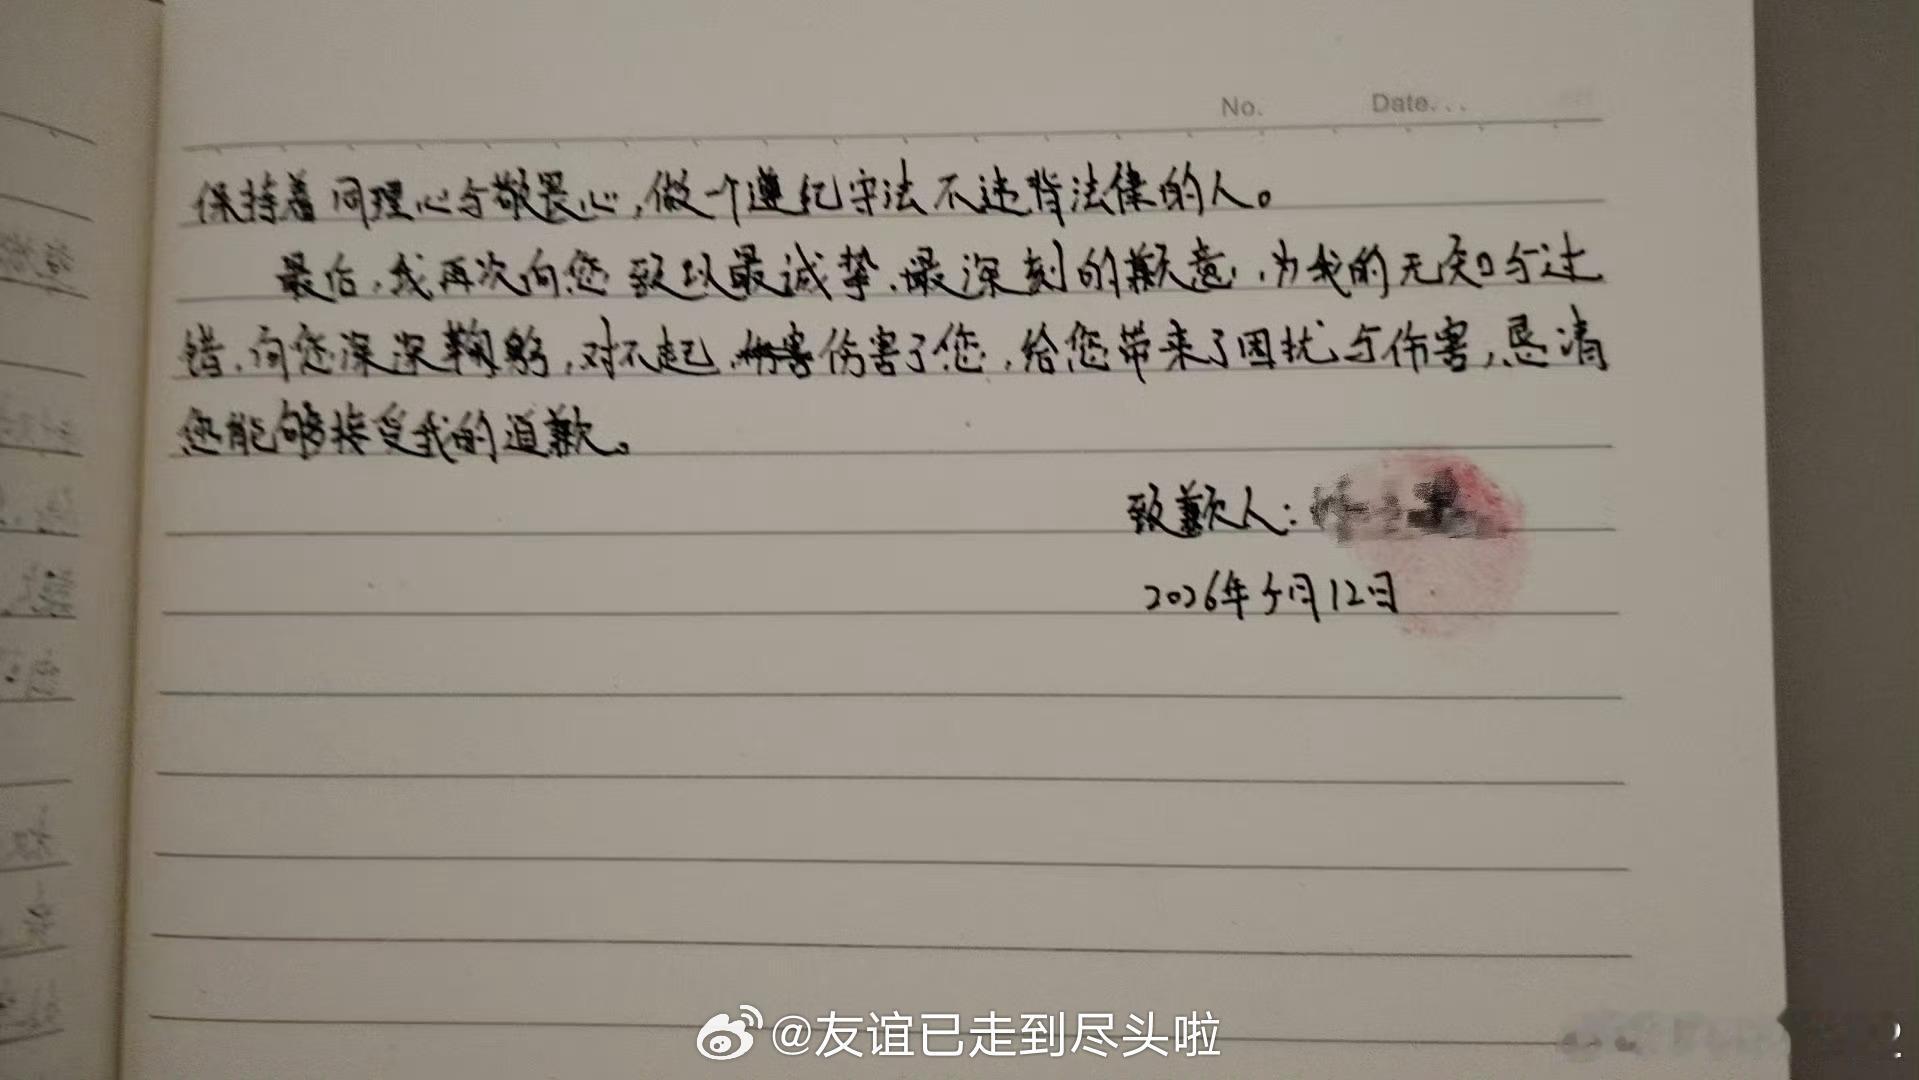 No. Date...
保持着同理心与敬畏心,做一个遵纪守法不违背法律的人。
最后,我再次向您致以最诚挚、最深刻的歉意,为我的无知与过
错,向您深深鞠躬,对不起,伤害伤害了您,给您带来了困扰与伤害,恳请
您能够接受我的道歉。
致歉人:
2026年5月12日
@友谊已走到尽头啦